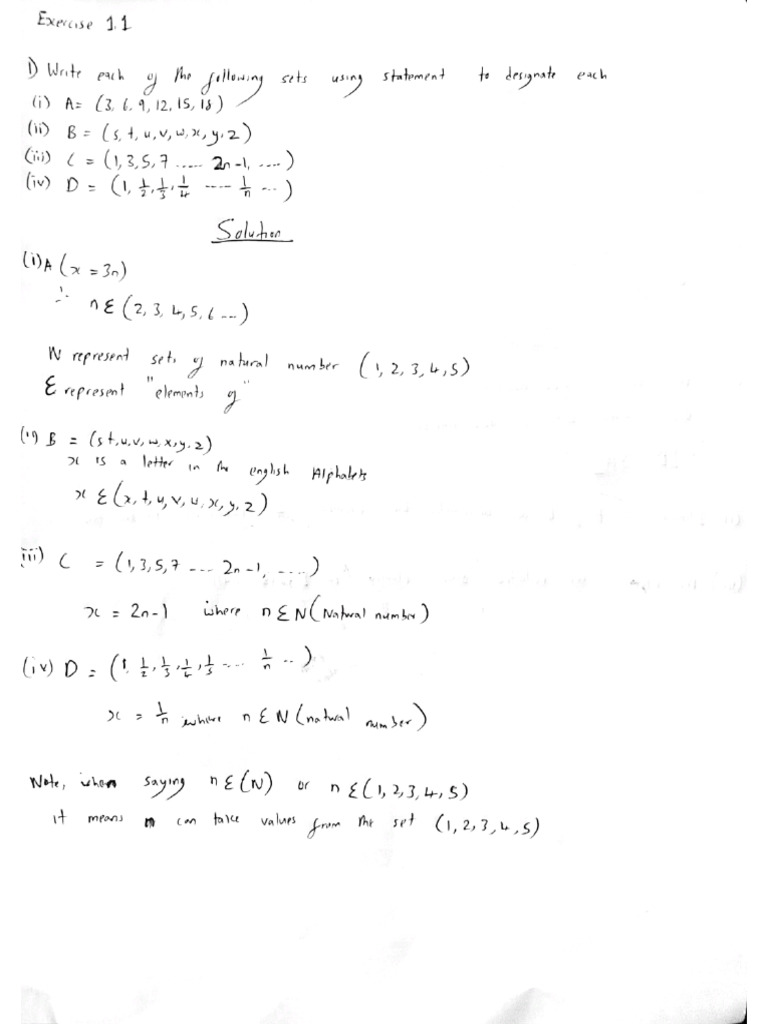 Exercise 1.1
1) Write each of the following sets using statement to designate each
(i) A = (3, 6, 9, 12, 15, 18)
(ii) B = (s, t, u, v, w, x, y, z)
(iii) C = (1, 3, 5, 7 ..... 2n-1, ....)
(iv) D = (1, 1/2, 1/3, 1/4 ---- 1/n ...)
Solution
(i) A (x = 3n)
∴ n ∈ (2, 3, 4, 5, 6 ...)
N represent sets of natural number (1, 2, 3, 4, 5)
∈ represent "elements of"
(ii) B = (s t, u, v, w, x, y, z)
x is a letter in the english Alphalets
x ∈ (x, t, u, v, u, x, y, z)
iii) C = (1, 3, 5, 7 ... 2n-1, ....)
x = 2n-1 where n ∈ N (Natural number)
(iv) D = (1, 1/2, 1/3, 1/4, 1/5 ... 1/n ..)
x = 1/n where n ∈ N (natural number)
Note, when saying n ∈ (N) or n ∈ (1, 2, 3, 4, 5)
it means n can take values from the set (1, 2, 3, 4, 5)